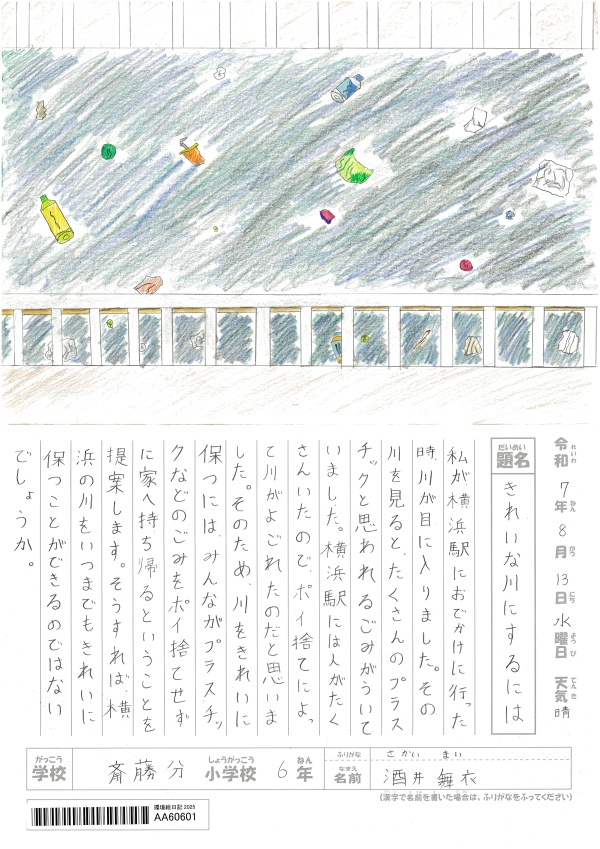 令和7年8月13日水曜日 天気晴
れいわ ねん がつ にち ようび てんき
だいめい
題名 きれいな川にするには
私が横浜駅におでかけに行った
時、川が目に入りました。その
川を見ると、たくさんのプラス
チックと思われるごみがういて
いました。横浜駅には人がたく
さんいたので、ポイ捨てによっ
て川がよごれたのだと思いま
した。そのため、川をきれいに
保つには、みんながプラスチッ
クなどのごみをポイ捨てせず
に家へ持ち帰るということを
提案します。そうすれば、横
浜の川をいつまでもきれいに
保つことができるのではない
でしょうか。
がっこう しょうがっこう ねん
学校 斎藤分 小学校 6年
ふりがな さかい まい
なまえ
名前 酒井舞衣
(漢字で名前を書いた場合は、ふりがなをふってください)
環境絵日記 2025
AA60601